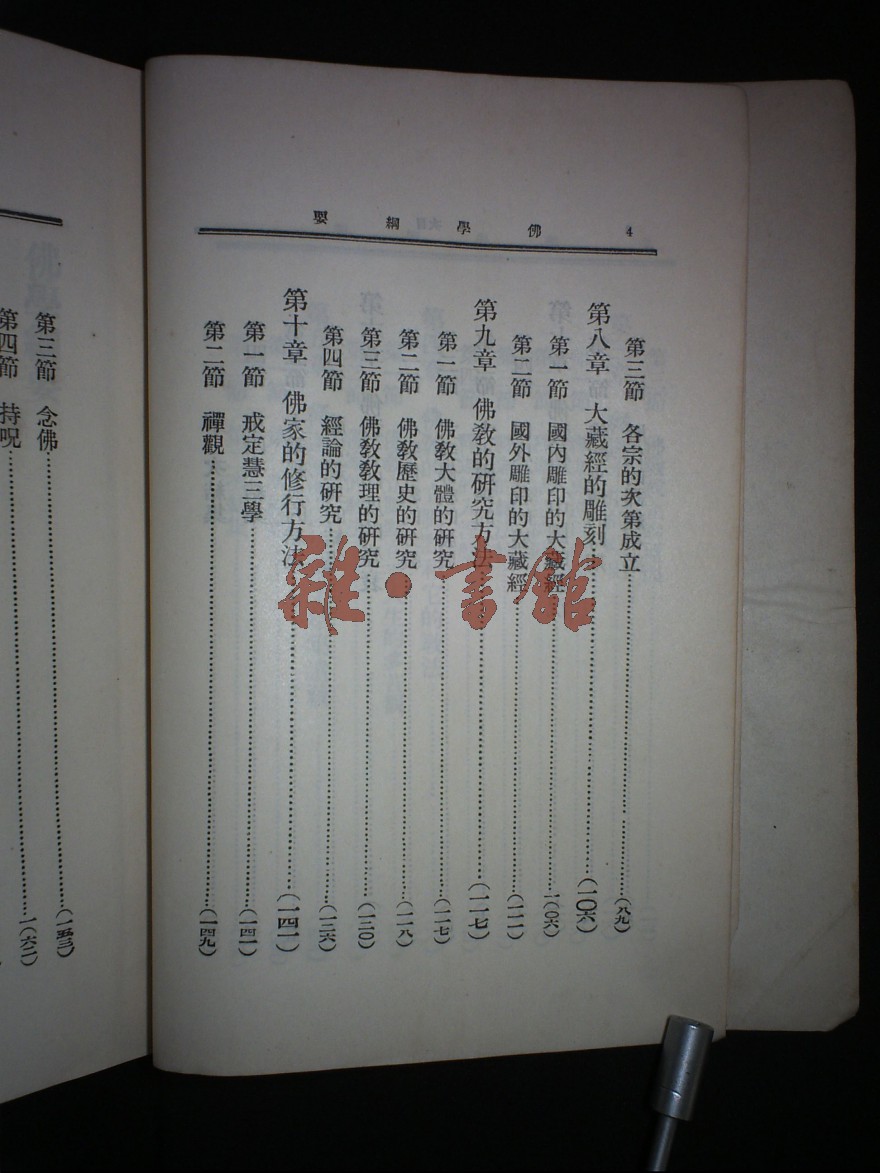 4 佛學綱要
第三節 各宗的次第成立……(八九)
第八章 大藏經的雕刻……(一〇六)
第一節 國內雕印的大藏經……一(〇六)
第二節 國外雕印的大藏經……(一一一)
第九章 佛教的研究方法……(一一七)
第一節 佛教大體的研究……(一一七)
第二節 佛教歷史的研究……(一一八)
第三節 佛教教理的研究……(一三〇)
第四節 經論的研究……(一三六)
第十章 佛家的修行方法……(一四一)
第一節 戒定慧三學……(一四一)
第二節 禪觀……(一四九)
第三節 念佛……(一五三)
第四節 持呪……一(六二)
雜·書館